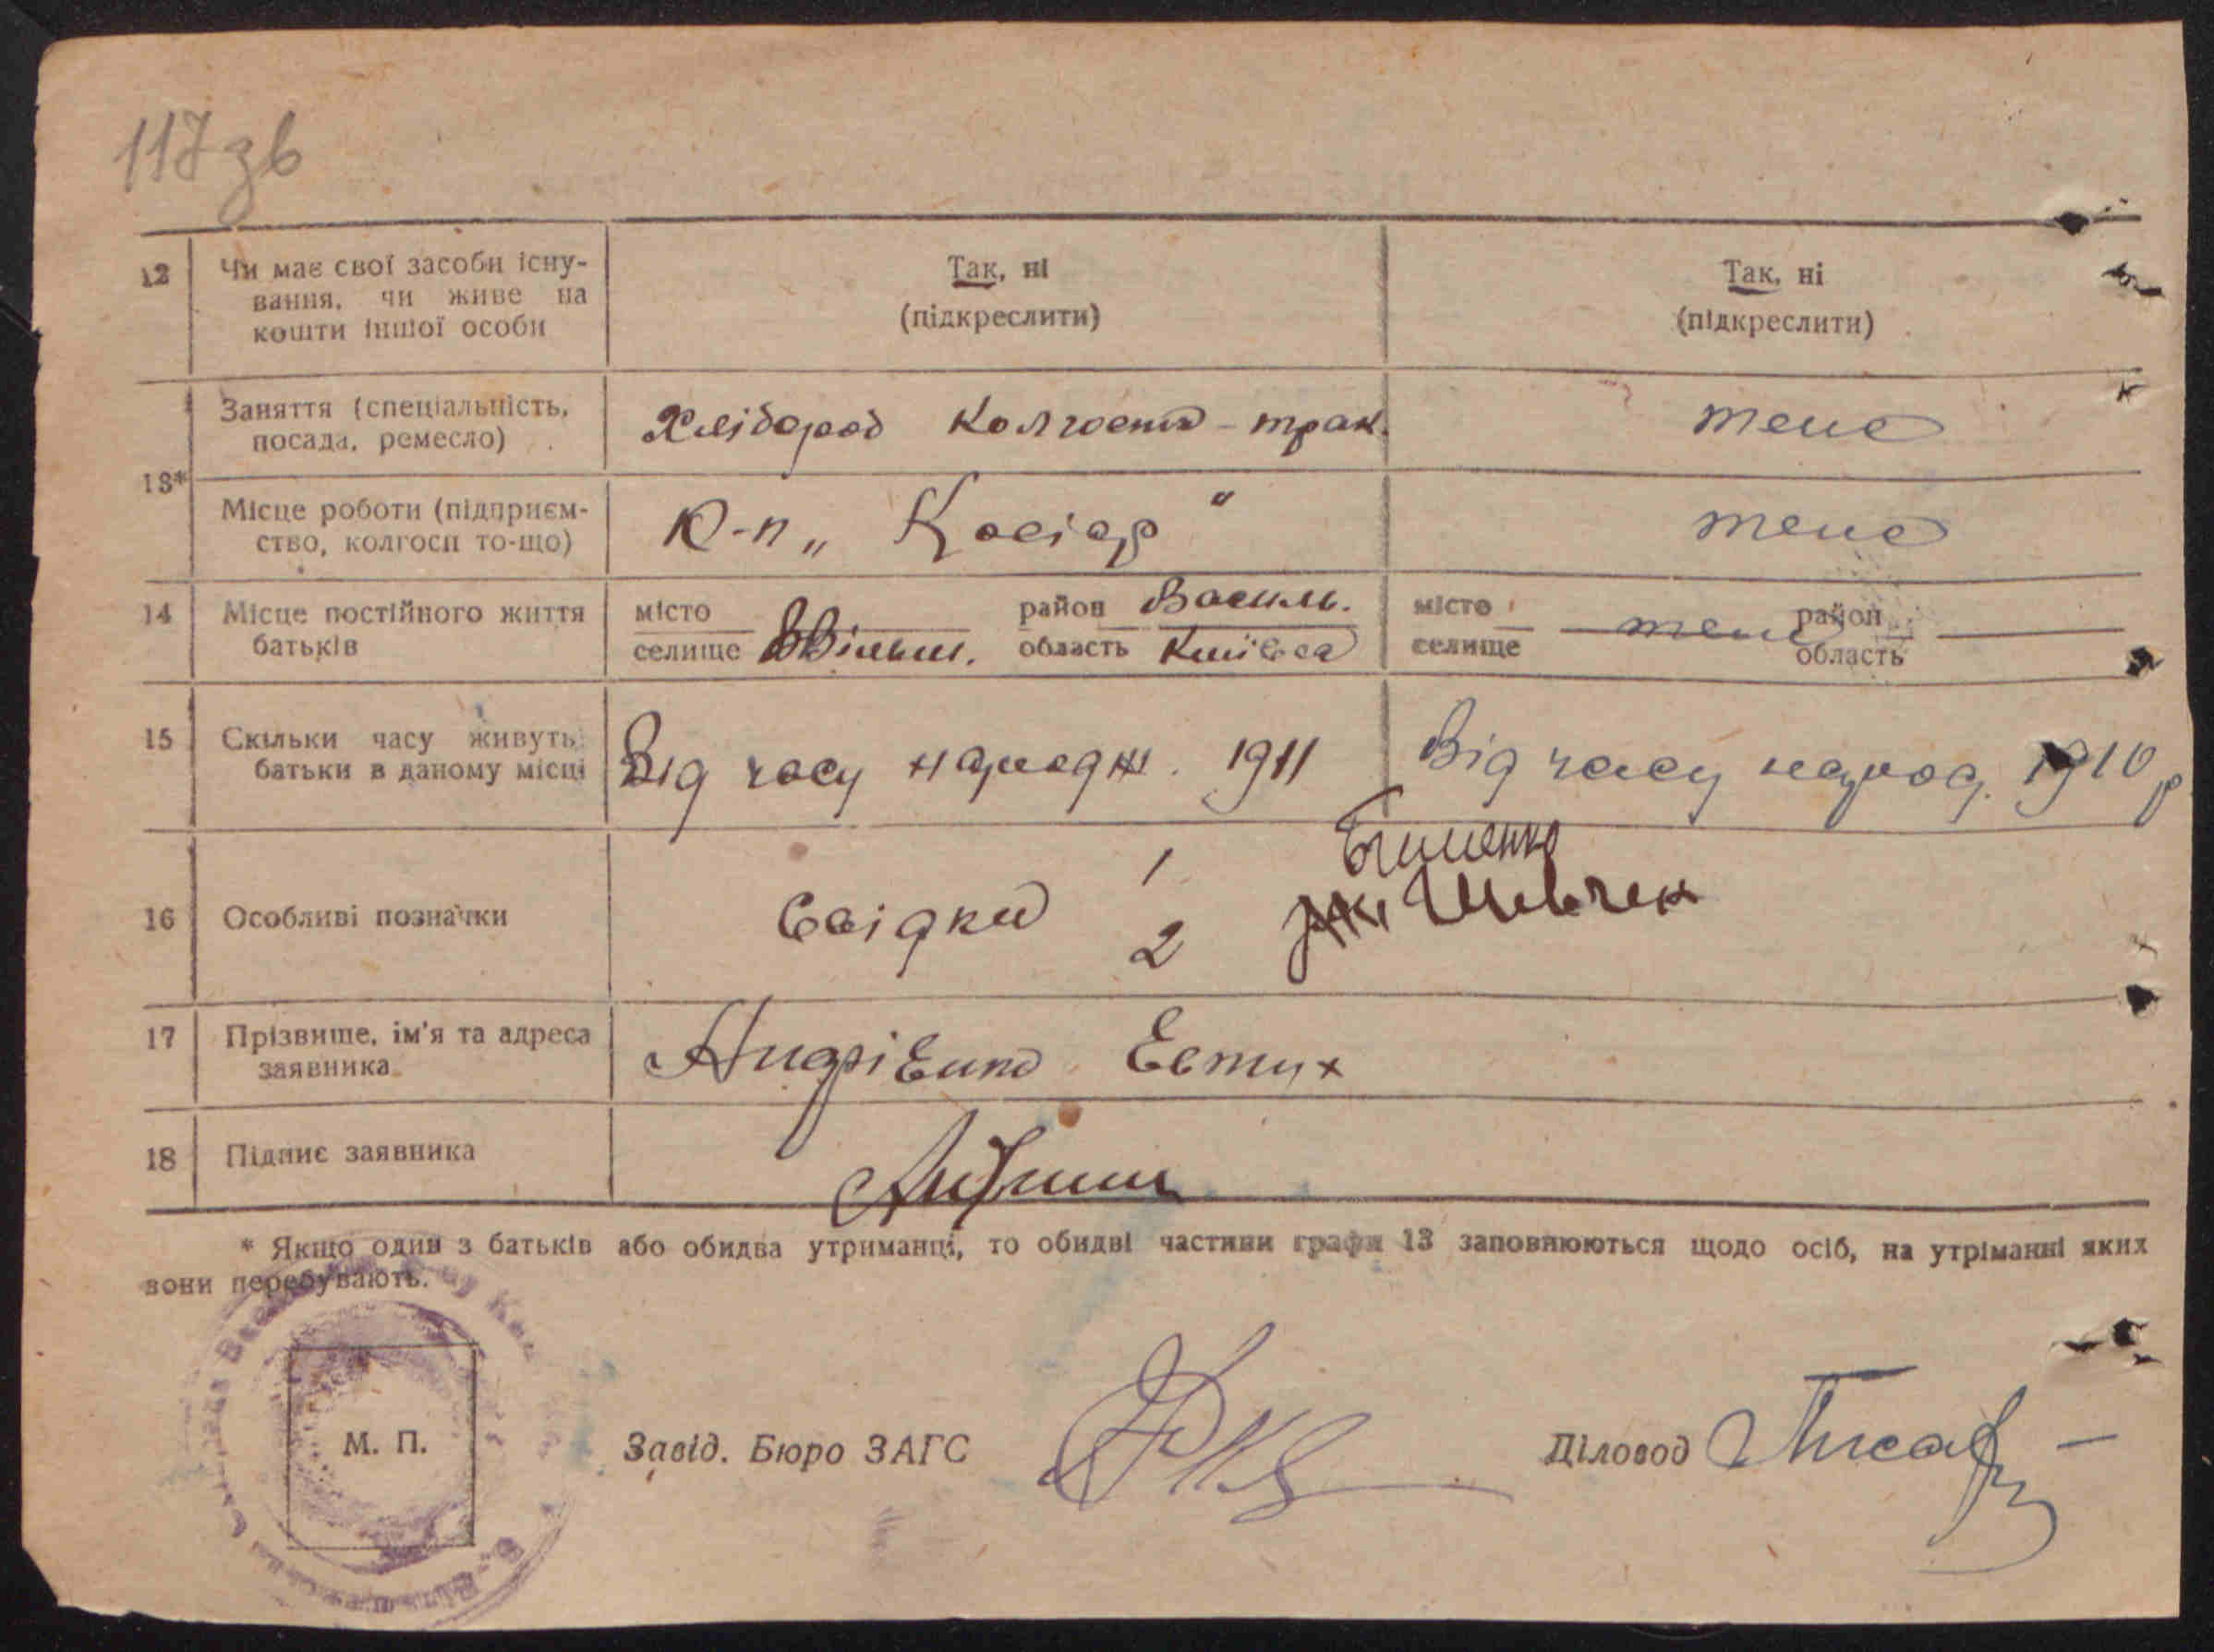 117 зв
12 Чи має свої засоби існу-
вання, чи живе на
кошти іншої особи
Так, ні
(підкреслити)
Так, ні
(підкреслити)
13*
Заняття (спеціальність,
посада, ремесло)
Хлібороб Колгосп - трак.
теж
Місце роботи (підприєм-
ство, колгосп то-що)
К-п „Косіор"
теж
14 Місце постійного життя
батьків
місто
селище
район Васильк.
область Київськ
місто
селище
теж
район
область
15 Скільки часу живуть
батьки в даному місці
Від часу народж. 1911
Від часу народ. 1910 р
16 Особливі позначки
Свідки 1
2 Шевчек
17 Прізвище, ім'я та адреса
заявника
Андрієнко Евтух
18 Підпис заявника
* Якщо один з батьків або обидва утриманці, то обидві частини графи 13 заповнюються щодо осіб, на утріманні яких
вони перебувають.
М. П.
Завід. Бюро ЗАГС
Діловод